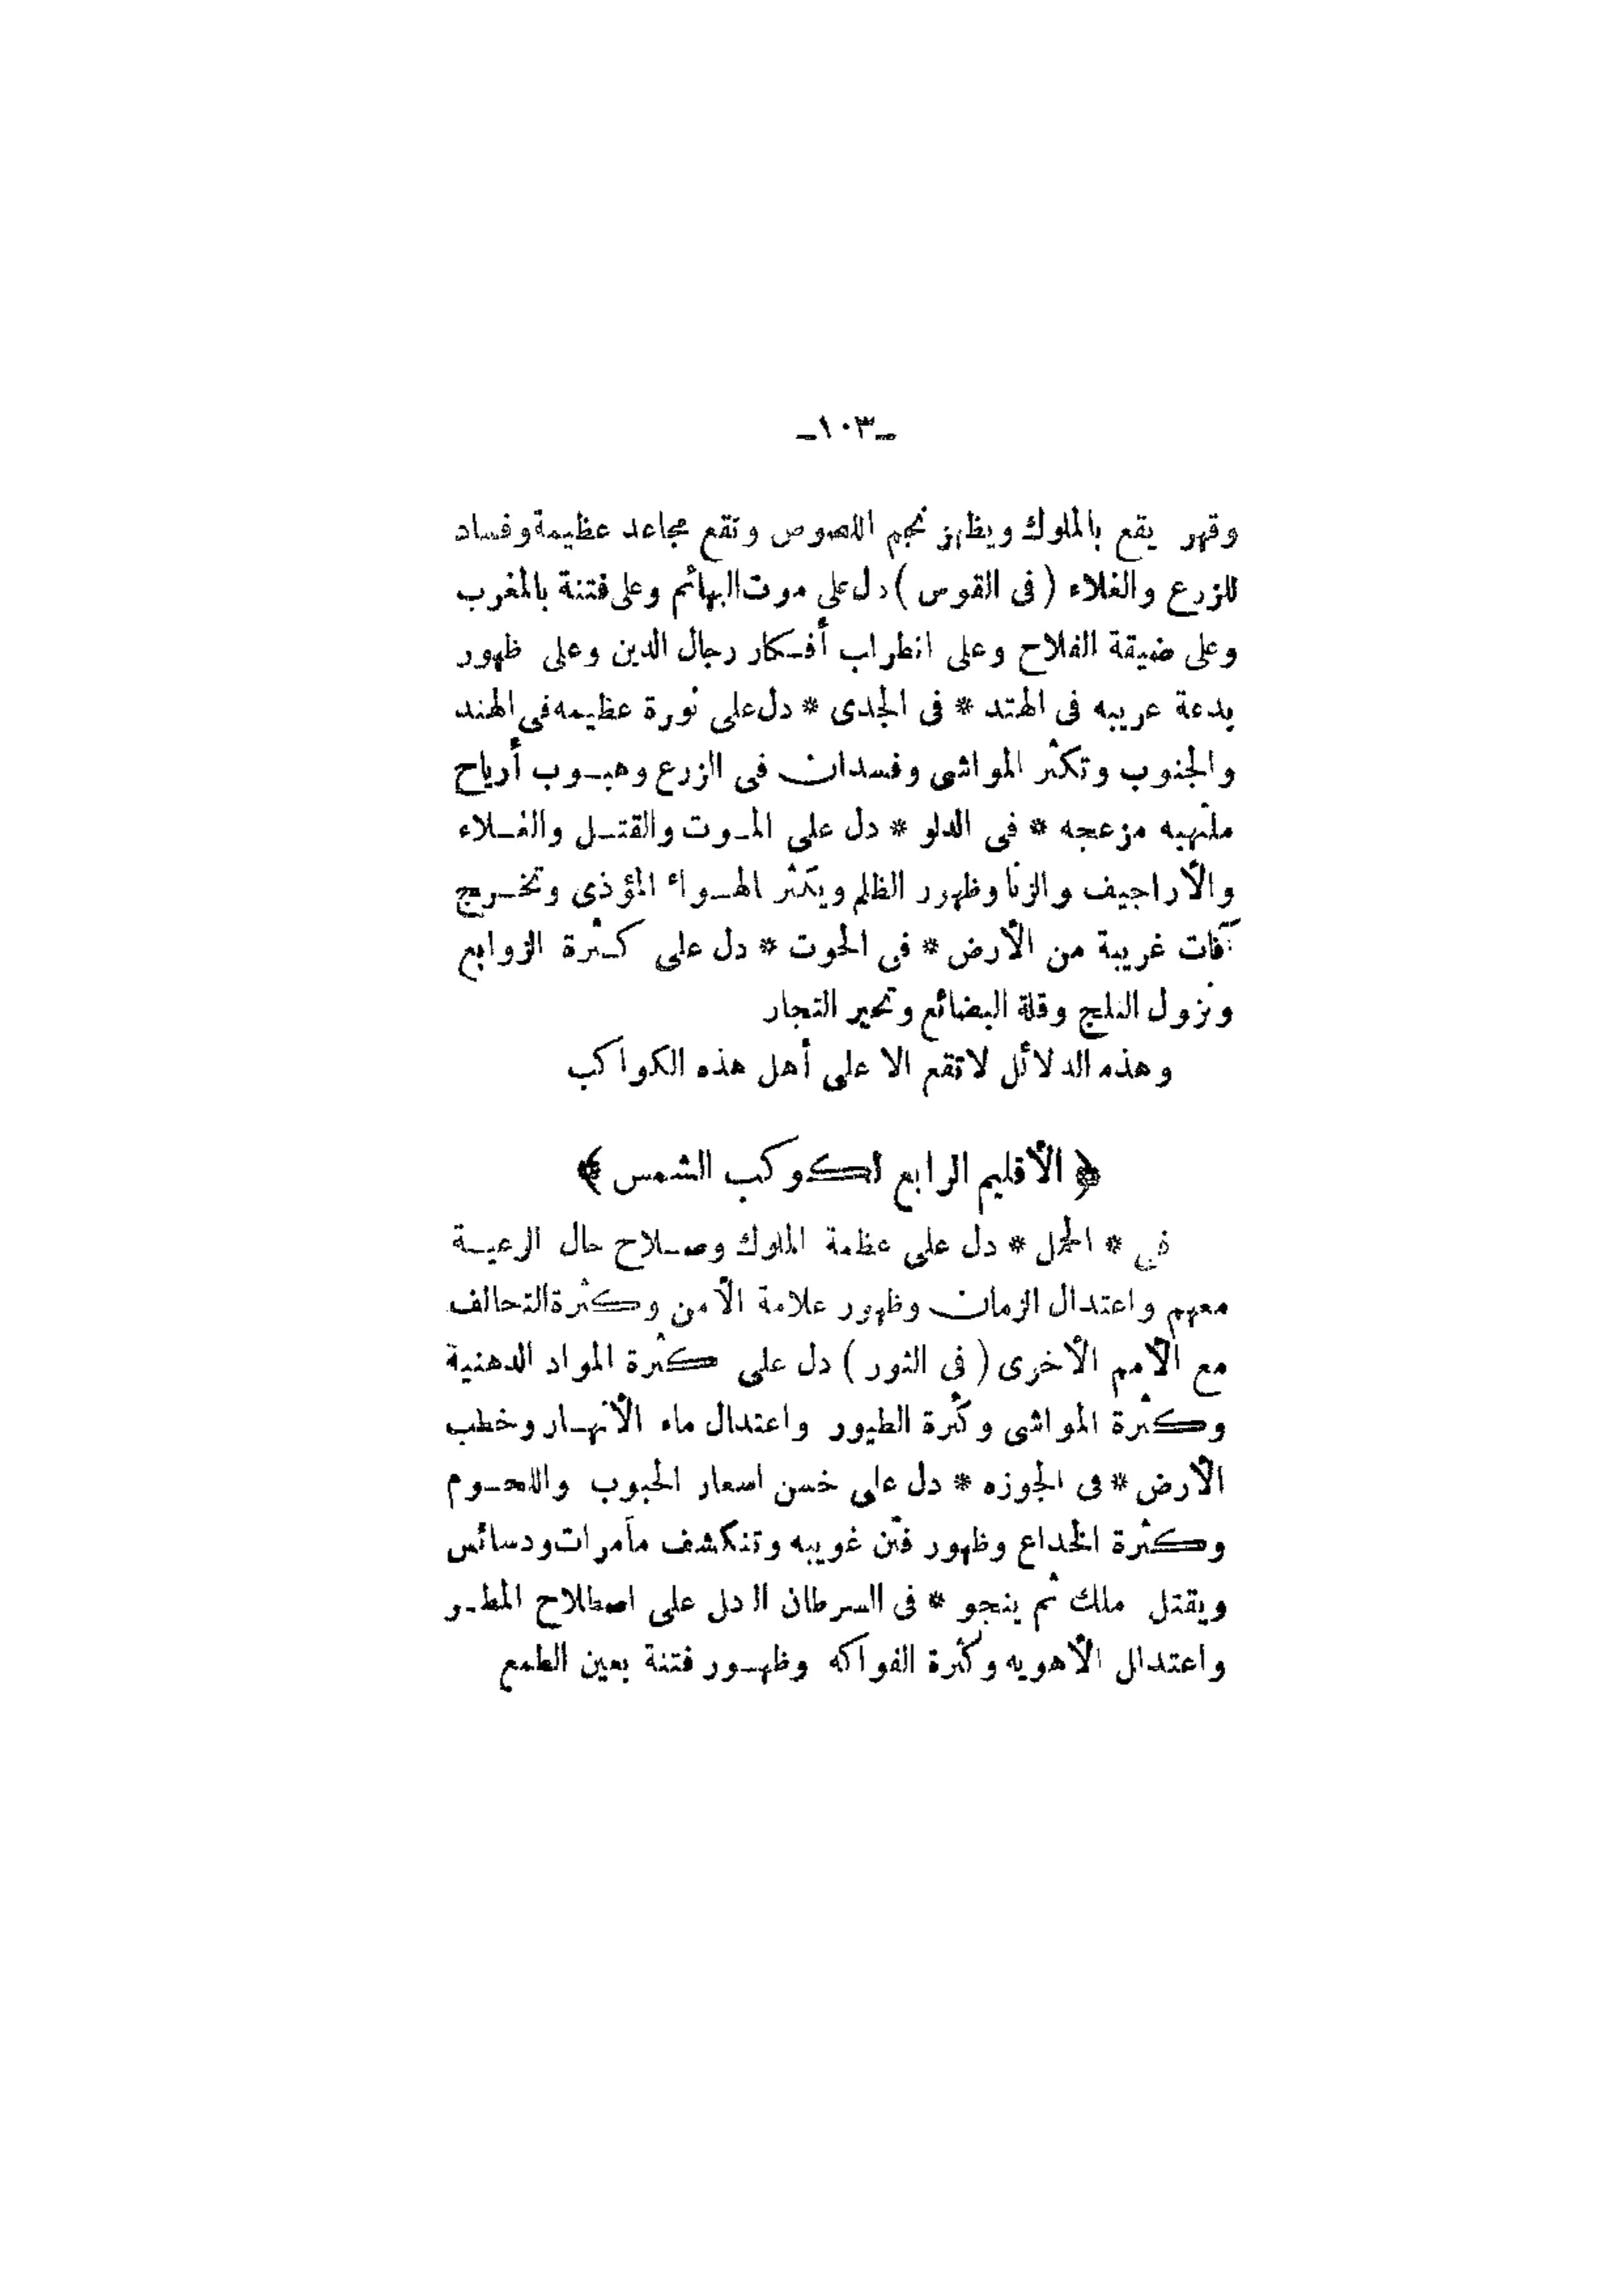 ـ١٠٣ـ
وقهر يقع بالملوك ويظهر نجم اللصوص وتقع مجاعد عظيمة وفساد
للزرع والغلاء ( فى القوس ) دل على موت البهائم وعلى فتنة بالمغرب
وعلى ضيقة الفلاح وعلى انطراب أفـكار رجال الدين وعلى ظهور
بدعة عريبه فى الهتد * فى الجدى * دل على نورة عظيمه فى الهند
والجنوب وتكثر المواشى وفسدان فى الزرع وهبـوب أرياح
ملتهبه مزعجه * فى الدلو * دل على المـوت والقتـل والغـلاء
والأراجيف والزنا وظهور الظلم ويكثر الهـواء المؤذى وتخـرج
آفات غريبة من الأرض * فى الحوت * دل على كـثرة الزوابع
ونزول الثلج وقلة البضائع وتحير التجار
وهذه الدلائل لاتقع الا على أهل هذه الكواكب
﴿ الأقليم الرابع لكوكب الشمس ﴾
فى * الحمل * دل على عظمة الملوك وصـلاح حال الرعيـة
معهم واعتدال الزمان وظهور علامة الأمن وكثرة التحالف
مع الأمم الأخرى ( فى الثور ) دل على كثرة المواد الدهنية
وكثرة المواشى وكثرة الطيور واعتدال ماء الأنهـار وخطب
الأرض * فى الجوزه * دل على خسن اسعار الحبوب واللحـوم
وكثرة الخداع وظهور فتن غويبه وتنكشف مآمرات ودسائس
ويقتل ملك ثم ينجو * فى السرطان اا دل على اصطلاح المطـر
واعتدال الأهويه وكثرة الفواكه وظهـور فتنة بعين الطمع